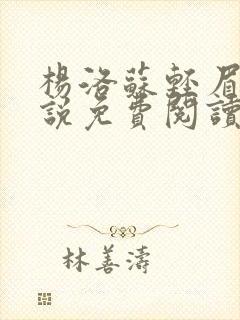 楊洛蘇輕眉
說免費閱讀
林善濤